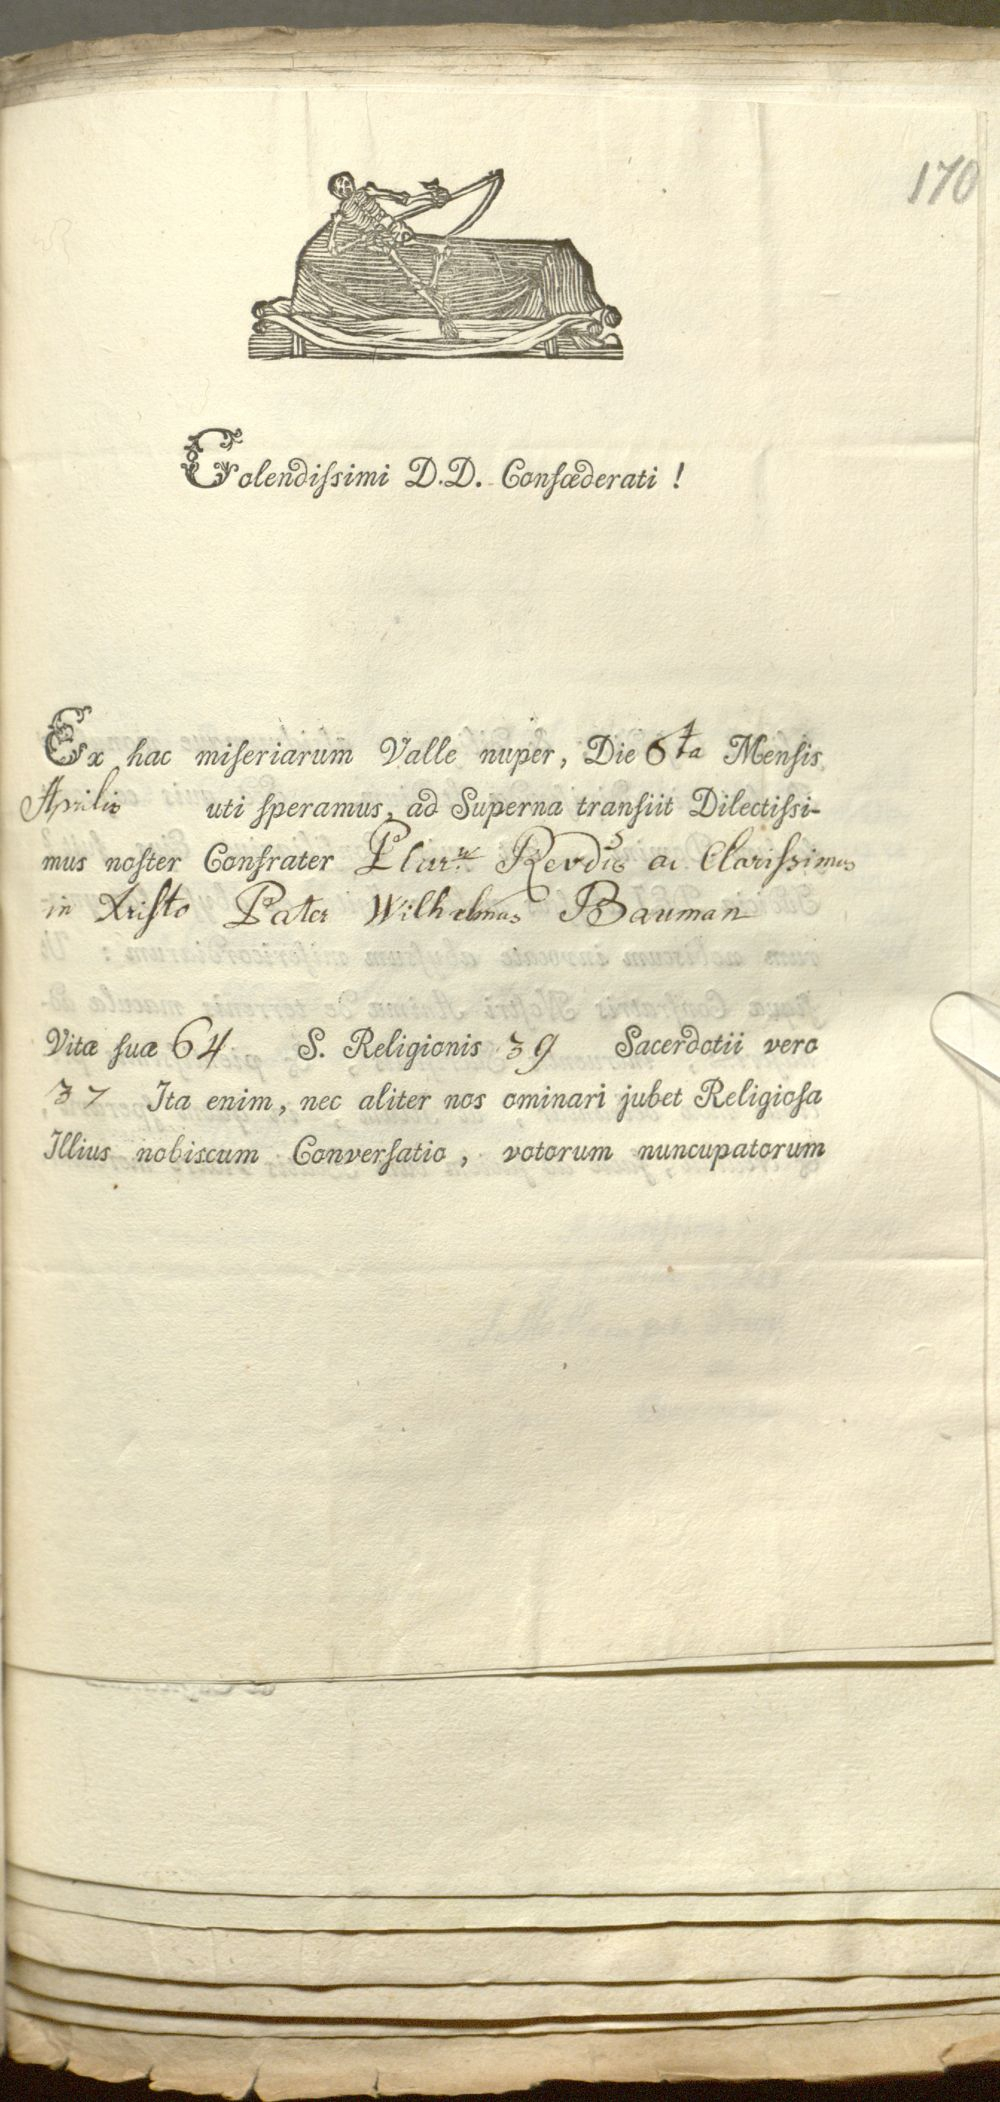 170
Colendiſsimi D.D. Confœderati !
Ex hac miſeriarum Valle nuper, Die 6ta Menſis
Aprilis uti ſperamus, ad Superna tranſiit Dilectiſsi-
mus noſter Confrater Plur. Revdus ac Clariſsimus
in Xriſto Pater Wilhelmus Bauman
Vitæ ſuæ 64 S. Religionis 39 Sacerdotii vero
37 Ita enim, nec aliter nos ominari jubet Religioſa
Illius nobiscum Converſatio, votorum nuncupatorum